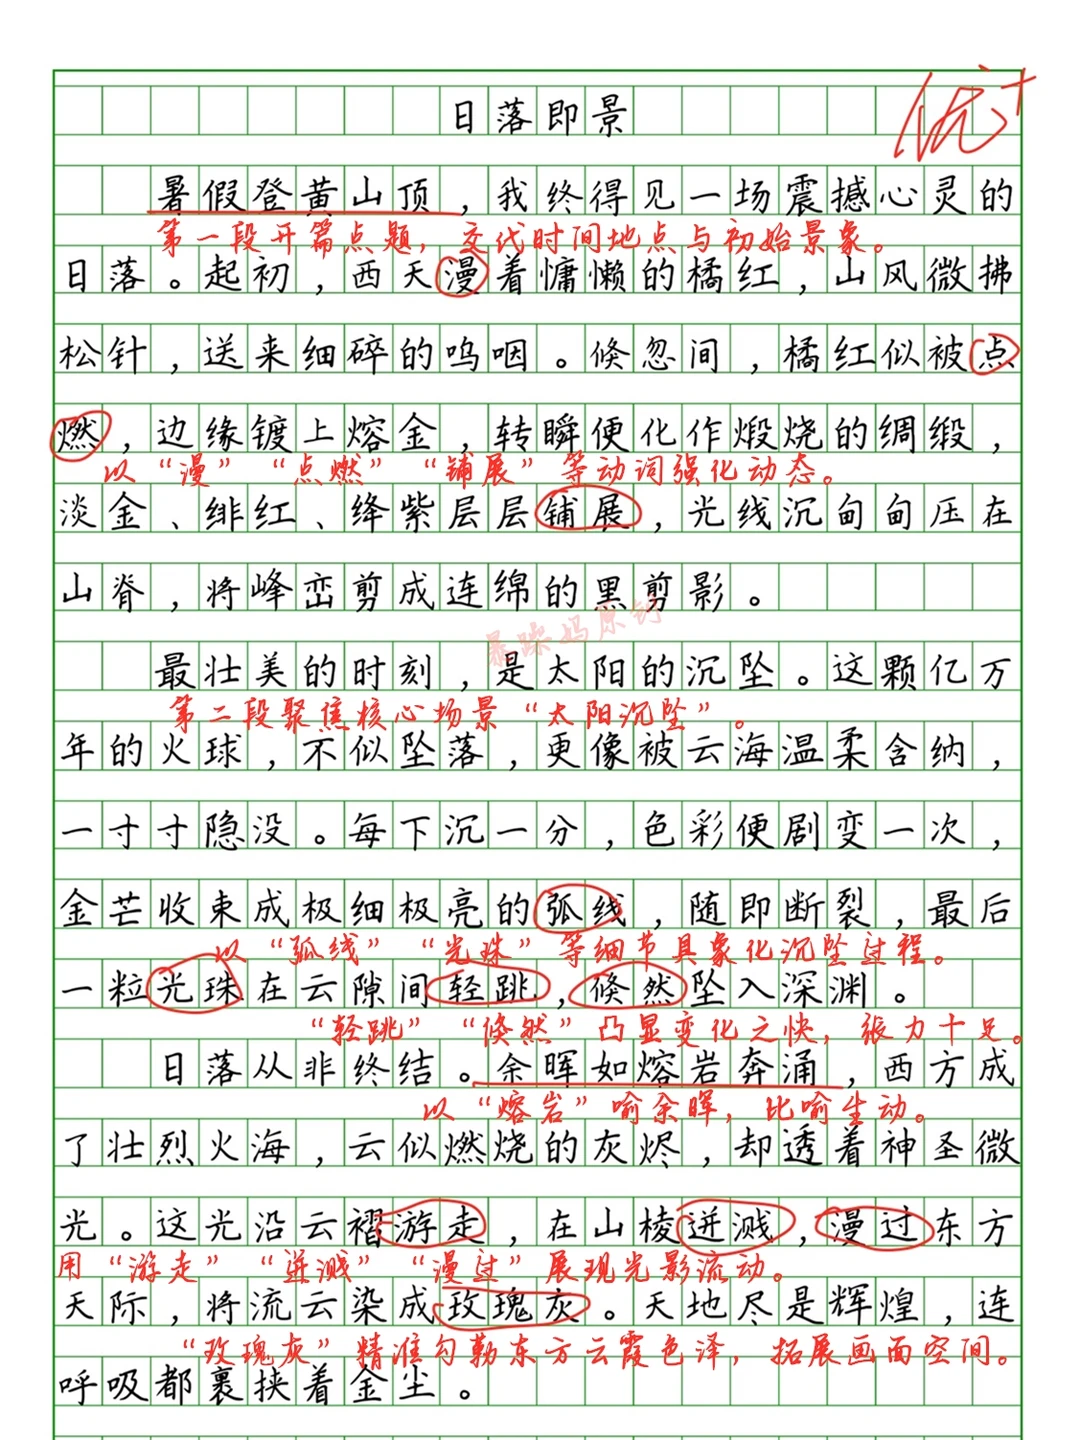 日落即景
优+
暑假登黄山顶，我终得见一场震撼心灵的
第一段开篇点题，交代时间地点与初始景象。
日落。起初，西天漫着慵懒的橘红，山风微拂
松针，送来细碎的呜咽。倏忽间，橘红似被点
燃，边缘镀上熔金，转瞬便化作煅烧的绸缎，
以“漫”“点燃”“铺展”等动词强化动态。
淡金、绯红、绛紫层层铺展，光线沉甸甸压在
山脊，将峰峦剪成连绵的黑剪影。
暴躁妈原创
最壮美的时刻，是太阳的沉坠。这颗亿万
第二段聚焦核心场景“太阳沉坠”。
年的火球，不似坠落，更像被云海温柔含纳，
一寸寸隐没。每下沉一分，色彩便剧变一次，
金芒收束成极细极亮的弧线，随即断裂，最后
以“弧线”“光珠”等细节具象化沉坠过程。
一粒光珠在云隙间轻跳，倏然坠入深渊。
“轻跳”“倏然”凸显变化之快，张力十足。
日落从非终结。余晖如熔岩奔涌，西方成
以“熔岩”喻余晖，比喻生动。
了壮烈火海，云似燃烧的灰烬，却透着神圣微
光。这光沿云褶游走，在山棱迸溅，漫过东方
用“游走”“迸溅”“漫过”展现光影流动。
天际，将流云染成玫瑰灰。天地尽是辉煌，连
“玫瑰灰”精准勾勒东方云霞色泽，拓展画面空间。
呼吸都裹挟着金尘。